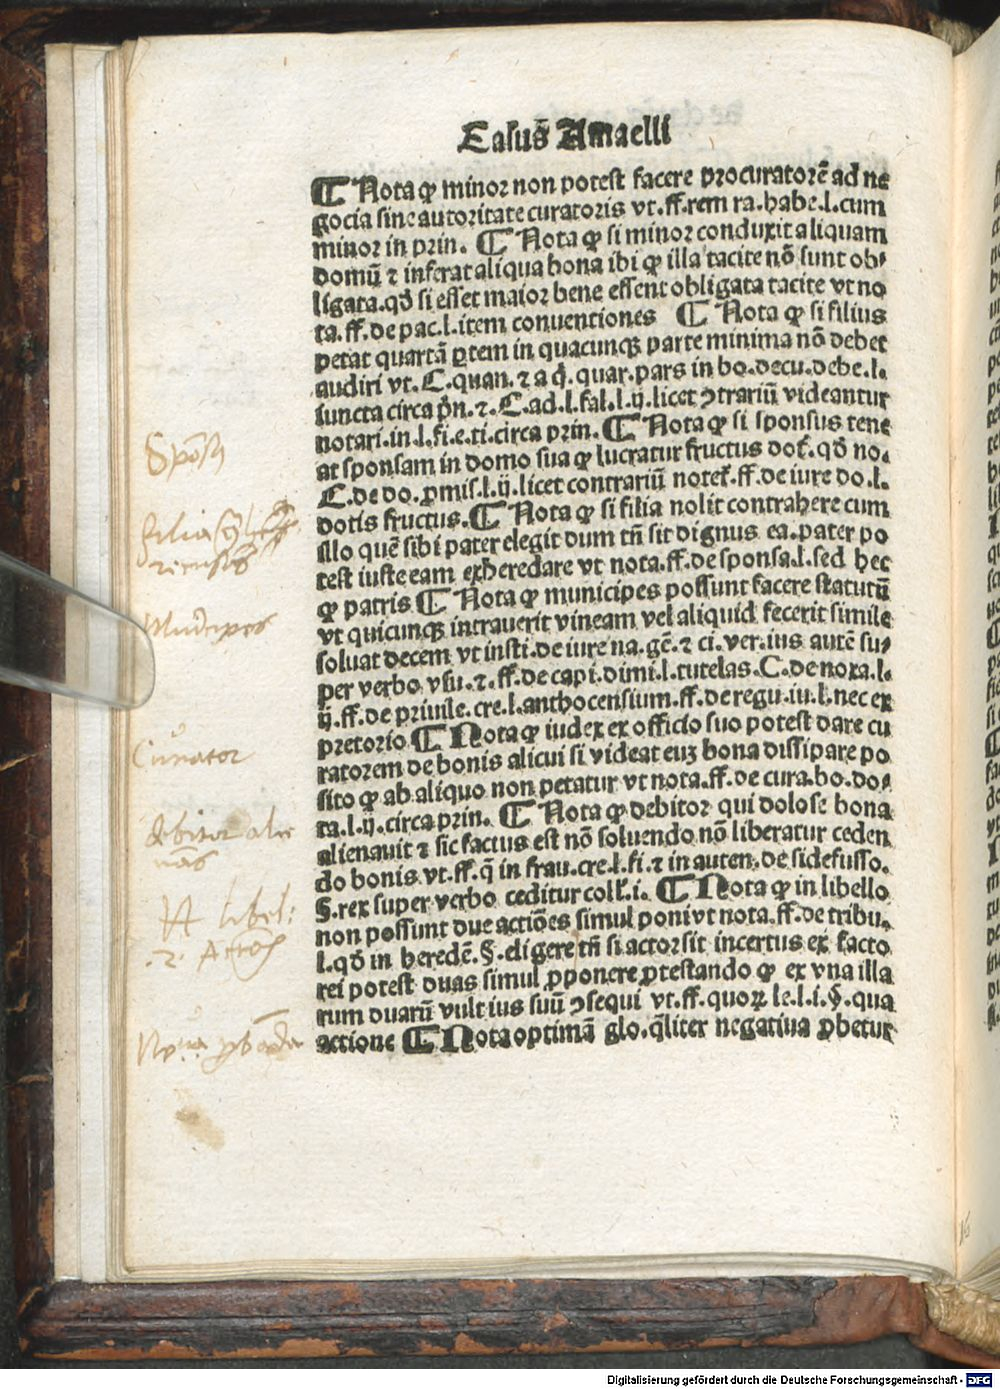 Casus̄ Amaelli
¶ Nota ꝙ minor non potest facere procuratorē ad ne
gocia sine autoritate curatoris vt .ff. rem ra. habe. l. cum
minor in prin. ¶ Nota ꝙ si minor conduxit aliquam
domū ⁊ inferat aliqua bona ibi ꝙ illa tacite nō sunt ob⸗
ligata. qđ si esset maior bene essent obligata tacite vt no
ta. ff. de pac. l. item conuentiones ¶ Nota ꝙ si filius
petat quartā ꝑtem in quacunqꝫ parte minima nō debet
audiri vt. C. quan. ⁊ a q̄. quar. pars in bo. decu. debe. l.
iuncta circa p̄n. ⁊. C. ad. l. fal. l. ij. licet ꝯtrariū videantur
notari. in. l. fi. e. ti. circa prin. ¶ Nota ꝙ si sponsus tene
at sponsam in domo sua ꝙ lucratur fructus dot. qđ no.
C. de do. ꝓmis. l. ij. licet contrariū notet. ff. de iure do. l.
dotis fructus. ¶ Nota ꝙ si filia nolit contrahere cum
illo quē sibi pater elegit dum tñ sit dignus ea. pater po
test iuste eam exheredare vt nota. ff. de sponsa. l. sed hec
ꝙ patris ¶ Nota ꝙ municipes possunt facere statutū
vt quicunqꝫ intrauerit vineam vel aliquid fecerit simile
soluat decem vt insti. de iure na. gē. ⁊ ci. ver. ius autē su⸗
per verbo vsu. ⁊. ff. de capi. dimi. l. tutelas. C. de noxa. l.
ij. ff. de priuile. cre. l. anthocensium. ff. de regu. iu. l. nec ex
pretorio ¶ Nota ꝙ iudex ex officio suo potest dare cu
ratorem de bonis alicui si videat euꝫ bona dissipare po
sito ꝙ ab aliquo non petatur vt nota. ff. de cura. bo. do⸗
ta. l. ij. circa prin. ¶ Nota ꝙ debitor qui dolose bona
alienauit ⁊ sic factus est nō soluendo nō liberatur ceden
do bonis vt. ff. q̄ in frau. cre. l. fi. ⁊ in auten. de fidefusso.
§. rex super verbo ceditur coll. i. ¶ Nota ꝙ in libello
non possunt due actiōes simul poni vt nota. ff. de tribu.
l. qđ in heredē. §. eligere tñ si actor sit incertus ex facto
rei potest duas simul ꝓponere ꝓtestando ꝙ ex vna illa
rum duarū vult ius suū ꝯsequi vt. ff. quoꝝ le. l. i. §. qua
actione ¶ Nota optimā glo. q̄liter negatiua ꝓbetur
Spōsꝰ
filia
Municipes
Curator
debitor alie
nās
libel:
.2. Actiōes
16
Digitalisierung gefördert durch die Deutsche Forschungsgemeinschaft - DFG